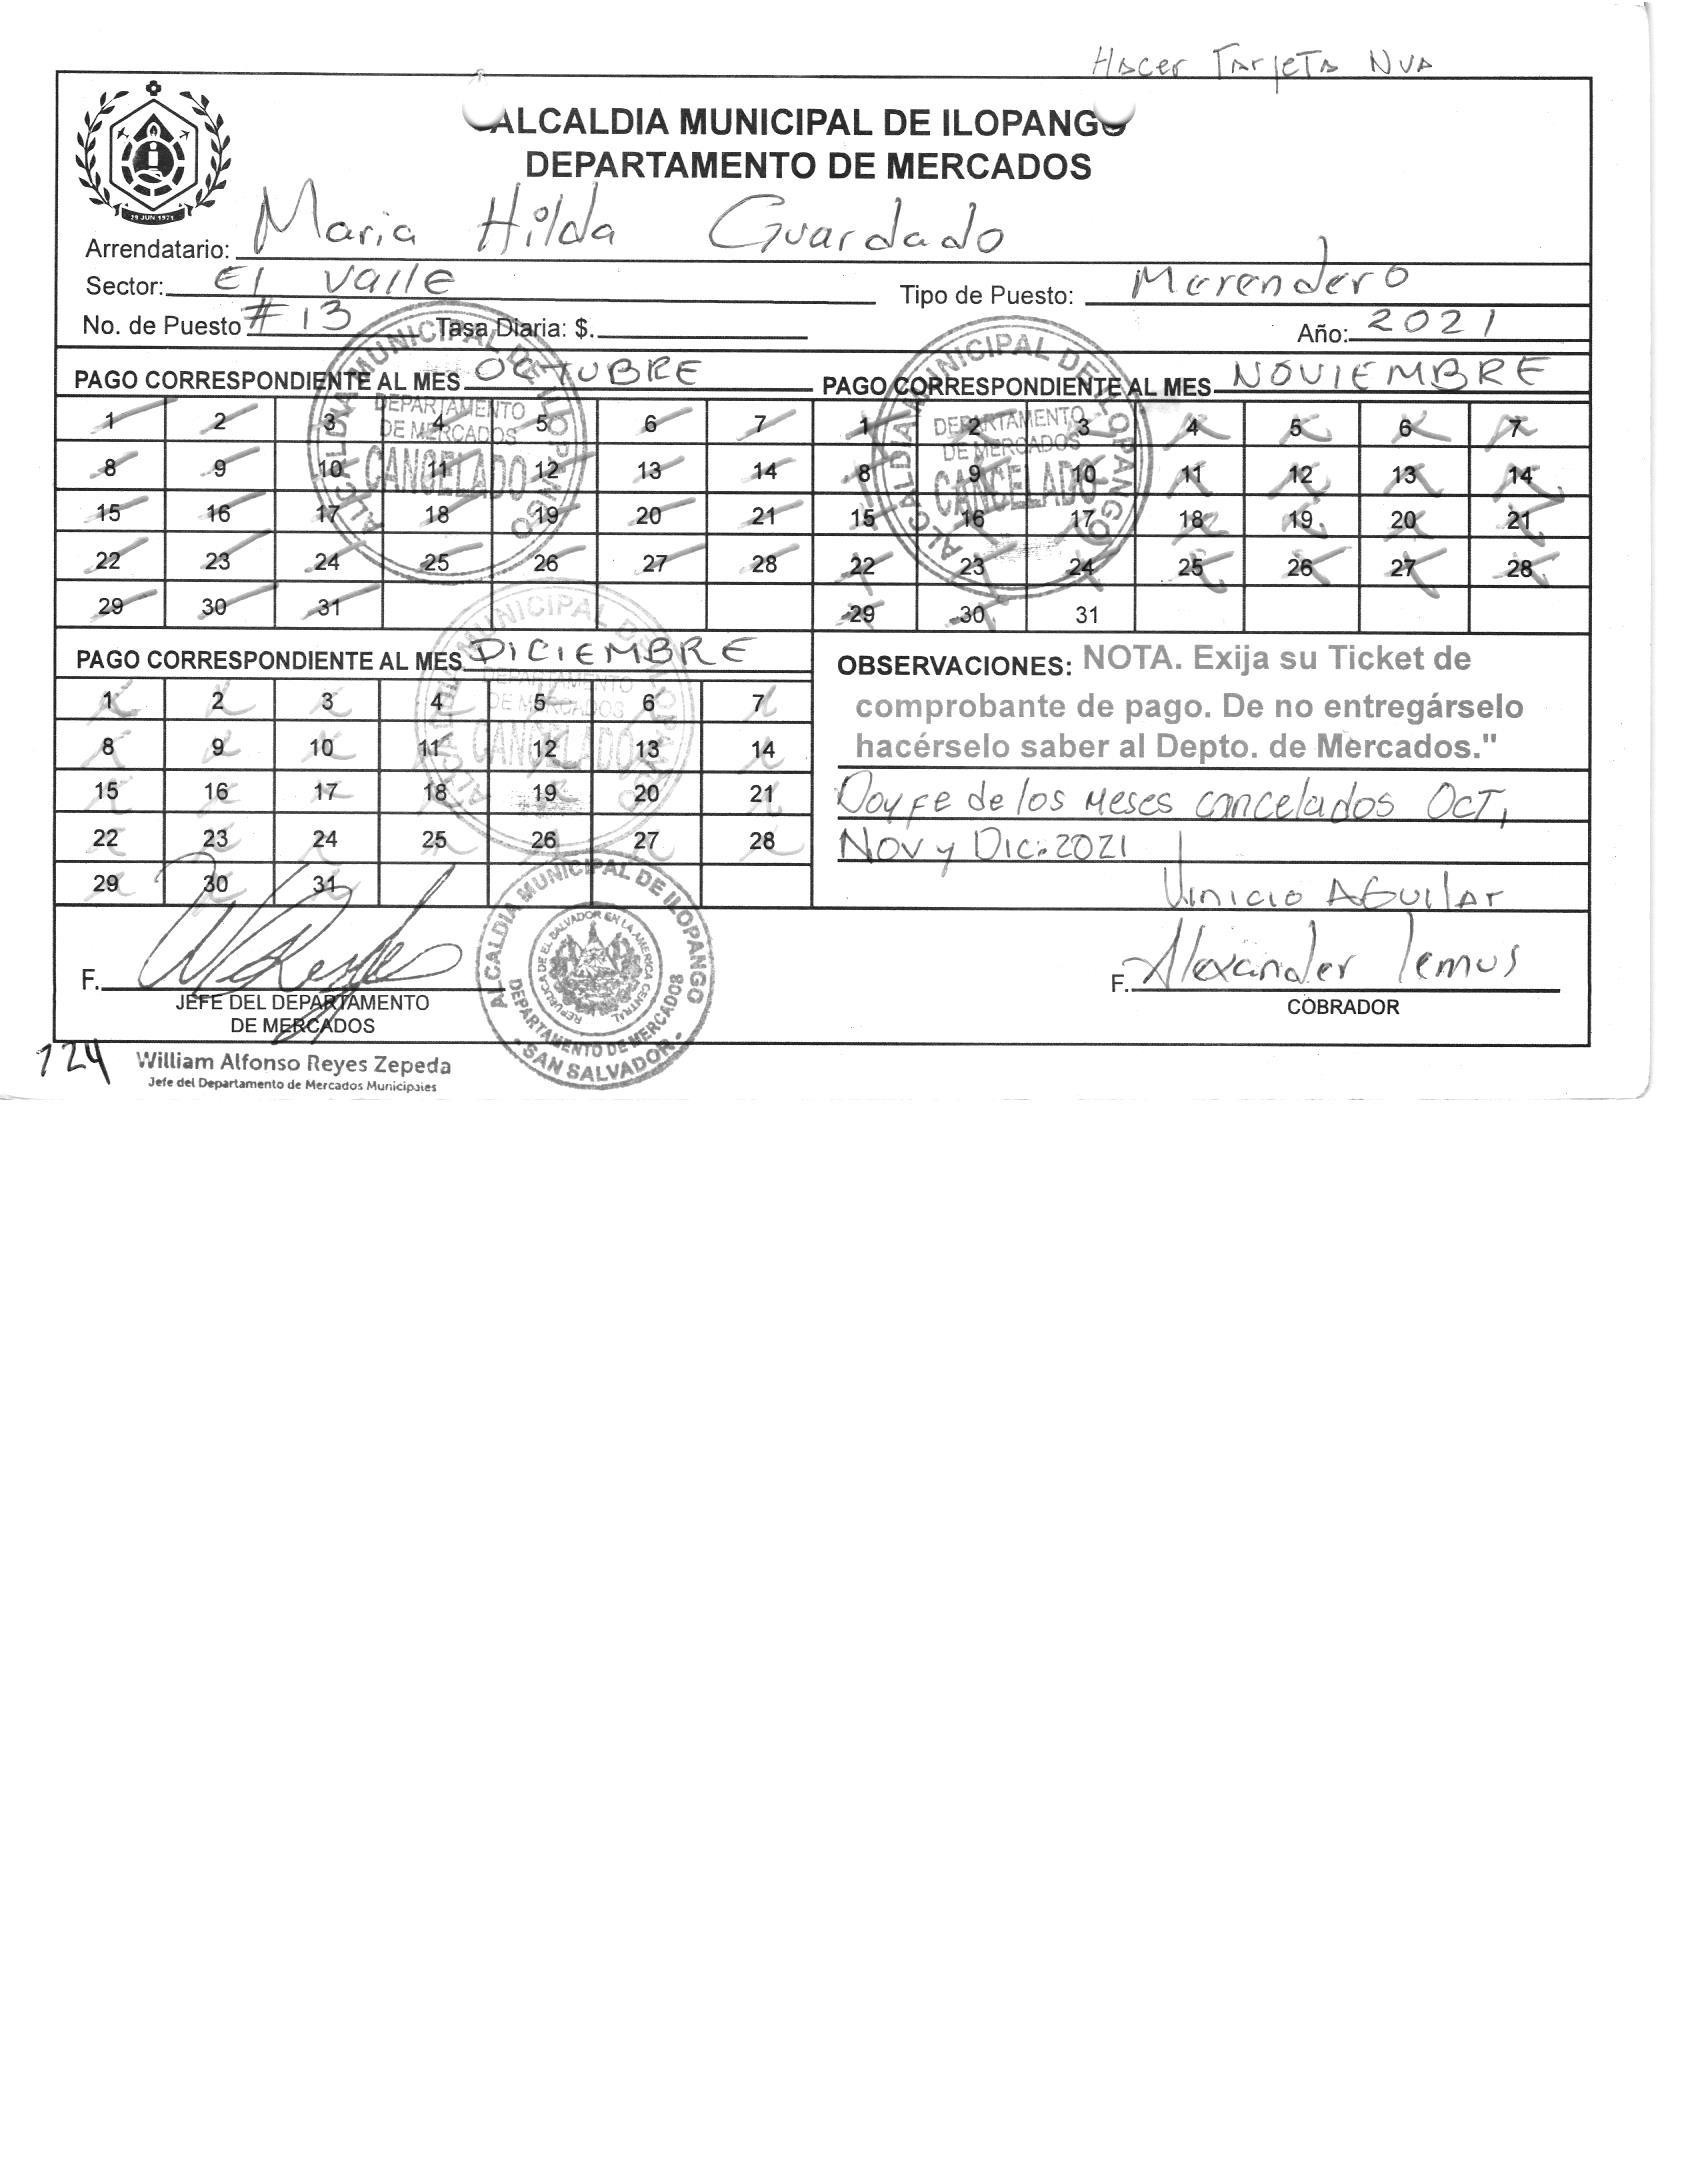 Hacer Tarjeta Nva
ALCALDIA MUNICIPAL DE ILOPANGO
DEPARTAMENTO DE MERCADOS
29 JUN 1971
Arrendatario: Maria Hilda Guardado
Sector: El Valle Tipo de Puesto: Merendero
No. de Puesto #13 Tasa Diaria: $. Año: 2021
PAGO CORRESPONDIENTE AL MES OCTUBRE
1 2 3 4 5 6 7
8 9 10 11 12 13 14
15 16 17 18 19 20 21
22 23 24 25 26 27 28
29 30 31
ALCALDIA MUNICIPAL DE ILOPANGO
DEPARTAMENTO
DE MERCADOS
CANCELADO
PAGO CORRESPONDIENTE AL MES NOVIEMBRE
1 2 3 4 5 6 7
8 9 10 11 12 13 14
15 16 17 18 19 20 21
22 23 24 25 26 27 28
29 30 31
ALCALDIA MUNICIPAL DE ILOPANGO
DEPARTAMENTO
DE MERCADOS
CANCELADO
PAGO CORRESPONDIENTE AL MES DICIEMBRE
1 2 3 4 5 6 7
8 9 10 11 12 13 14
15 16 17 18 19 20 21
22 23 24 25 26 27 28
29 30 31
ALCALDIA MUNICIPAL DE ILOPANGO
DEPARTAMENTO
DE MERCADOS
CANCELADO
OBSERVACIONES: NOTA. Exija su Ticket de
comprobante de pago. De no entregárselo
hacérselo saber al Depto. de Mercados."
Doy Fe de los Meses cancelados Oct,
Nov y Dic. 2021
Vinicio Aguilar
F.
JEFE DEL DEPARTAMENTO
DE MERCADOS
ALCALDIA MUNICIPAL DE ILOPANGO
DEPARTAMENTO DE MERCADOS
- SAN SALVADOR -
REPUBLICA DE EL SALVADOR EN LA AMERICA CENTRAL
F. Alexander Lemus
COBRADOR
124
William Alfonso Reyes Zepeda
Jefe del Departamento de Mercados Municipales